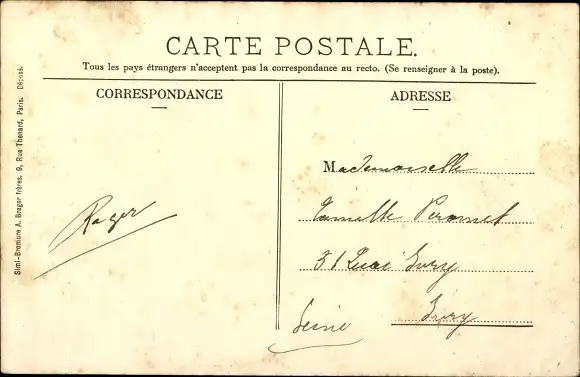 CARTE POSTALE.
Tous les pays étrangers n'acceptent pas la correspondance au recto. (Se renseigner à la poste).
CORRESPONDANCE
ADRESSE
Simi-Bromure A. Breger frères. 9, Rue Thénard, Paris. Déposé.
Roger
Mademoiselle
Camille Peronnet
31 Quai Ivry
Ivry
Seine